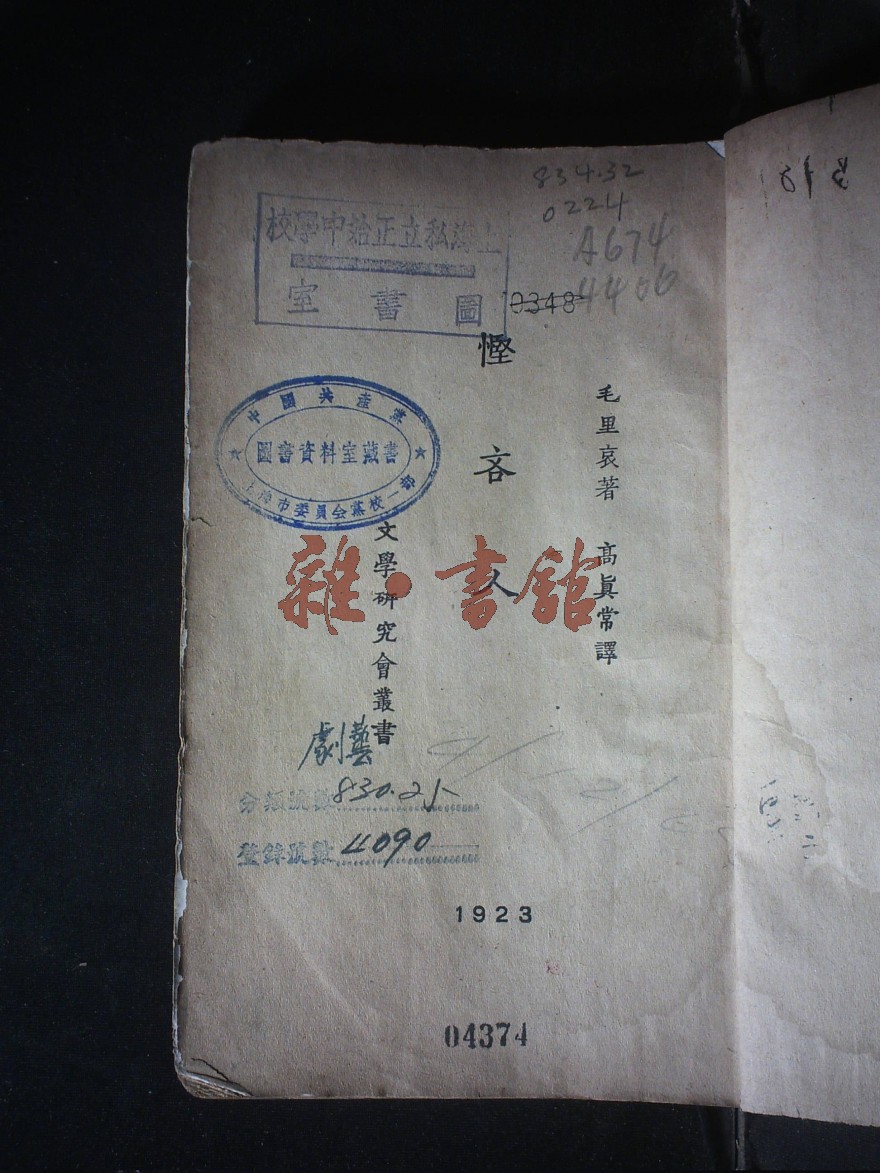 834.32
0224
A674
4406
0348
上海私立正始中學校
圖書室
慳吝人
毛里哀著 高真常譯
中國共產黨
圖書資料室藏書
上海市委員会黨校一部
文學研究會叢書
雜·書館
劇藝
分類號數830.21
登錄號數4090
1923
04374